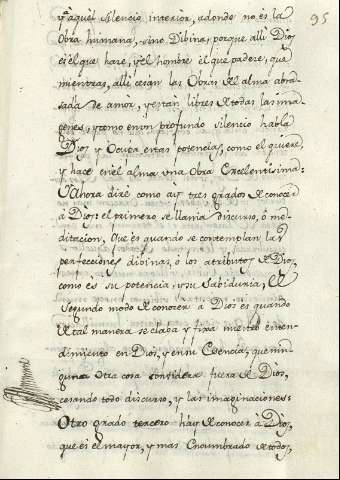 95
y aquel silencio interior, adonde no es la
obra humana, sino Dibina, porque alli Dios
es el que hace, y el hombre el que padese, que
mientras, alli cesan las obras del alma abra-
sada de amor, y estan libres de todas las ima-
genes, y como en un profundo silencio habla
Dios, y Ocupa estas potencias, como el quiere,
y hace en el alma una Obra Excelentisima:
Y Ahora diré como ay tres grados de conocer
à Dios: el primero se llama discurso, ò me-
ditacion, que es quando se contemplan las
perfecciones dibinas, ò los atributos de Dios,
como es su potencia, y su Sabiduria, El
Segundo modo de conocer à Dios es quando
de tal manera se claba y fixa nuestro enten-
dimiento en Dios, y en su Esencia, que nin-
guna otra cosa considera fuera de Dios,
cesando todo discurso, y las imaginaciones:
Otro grado tercero hay de conocer à Dios,
que es el mayor, y mas Encumbrado de todos,